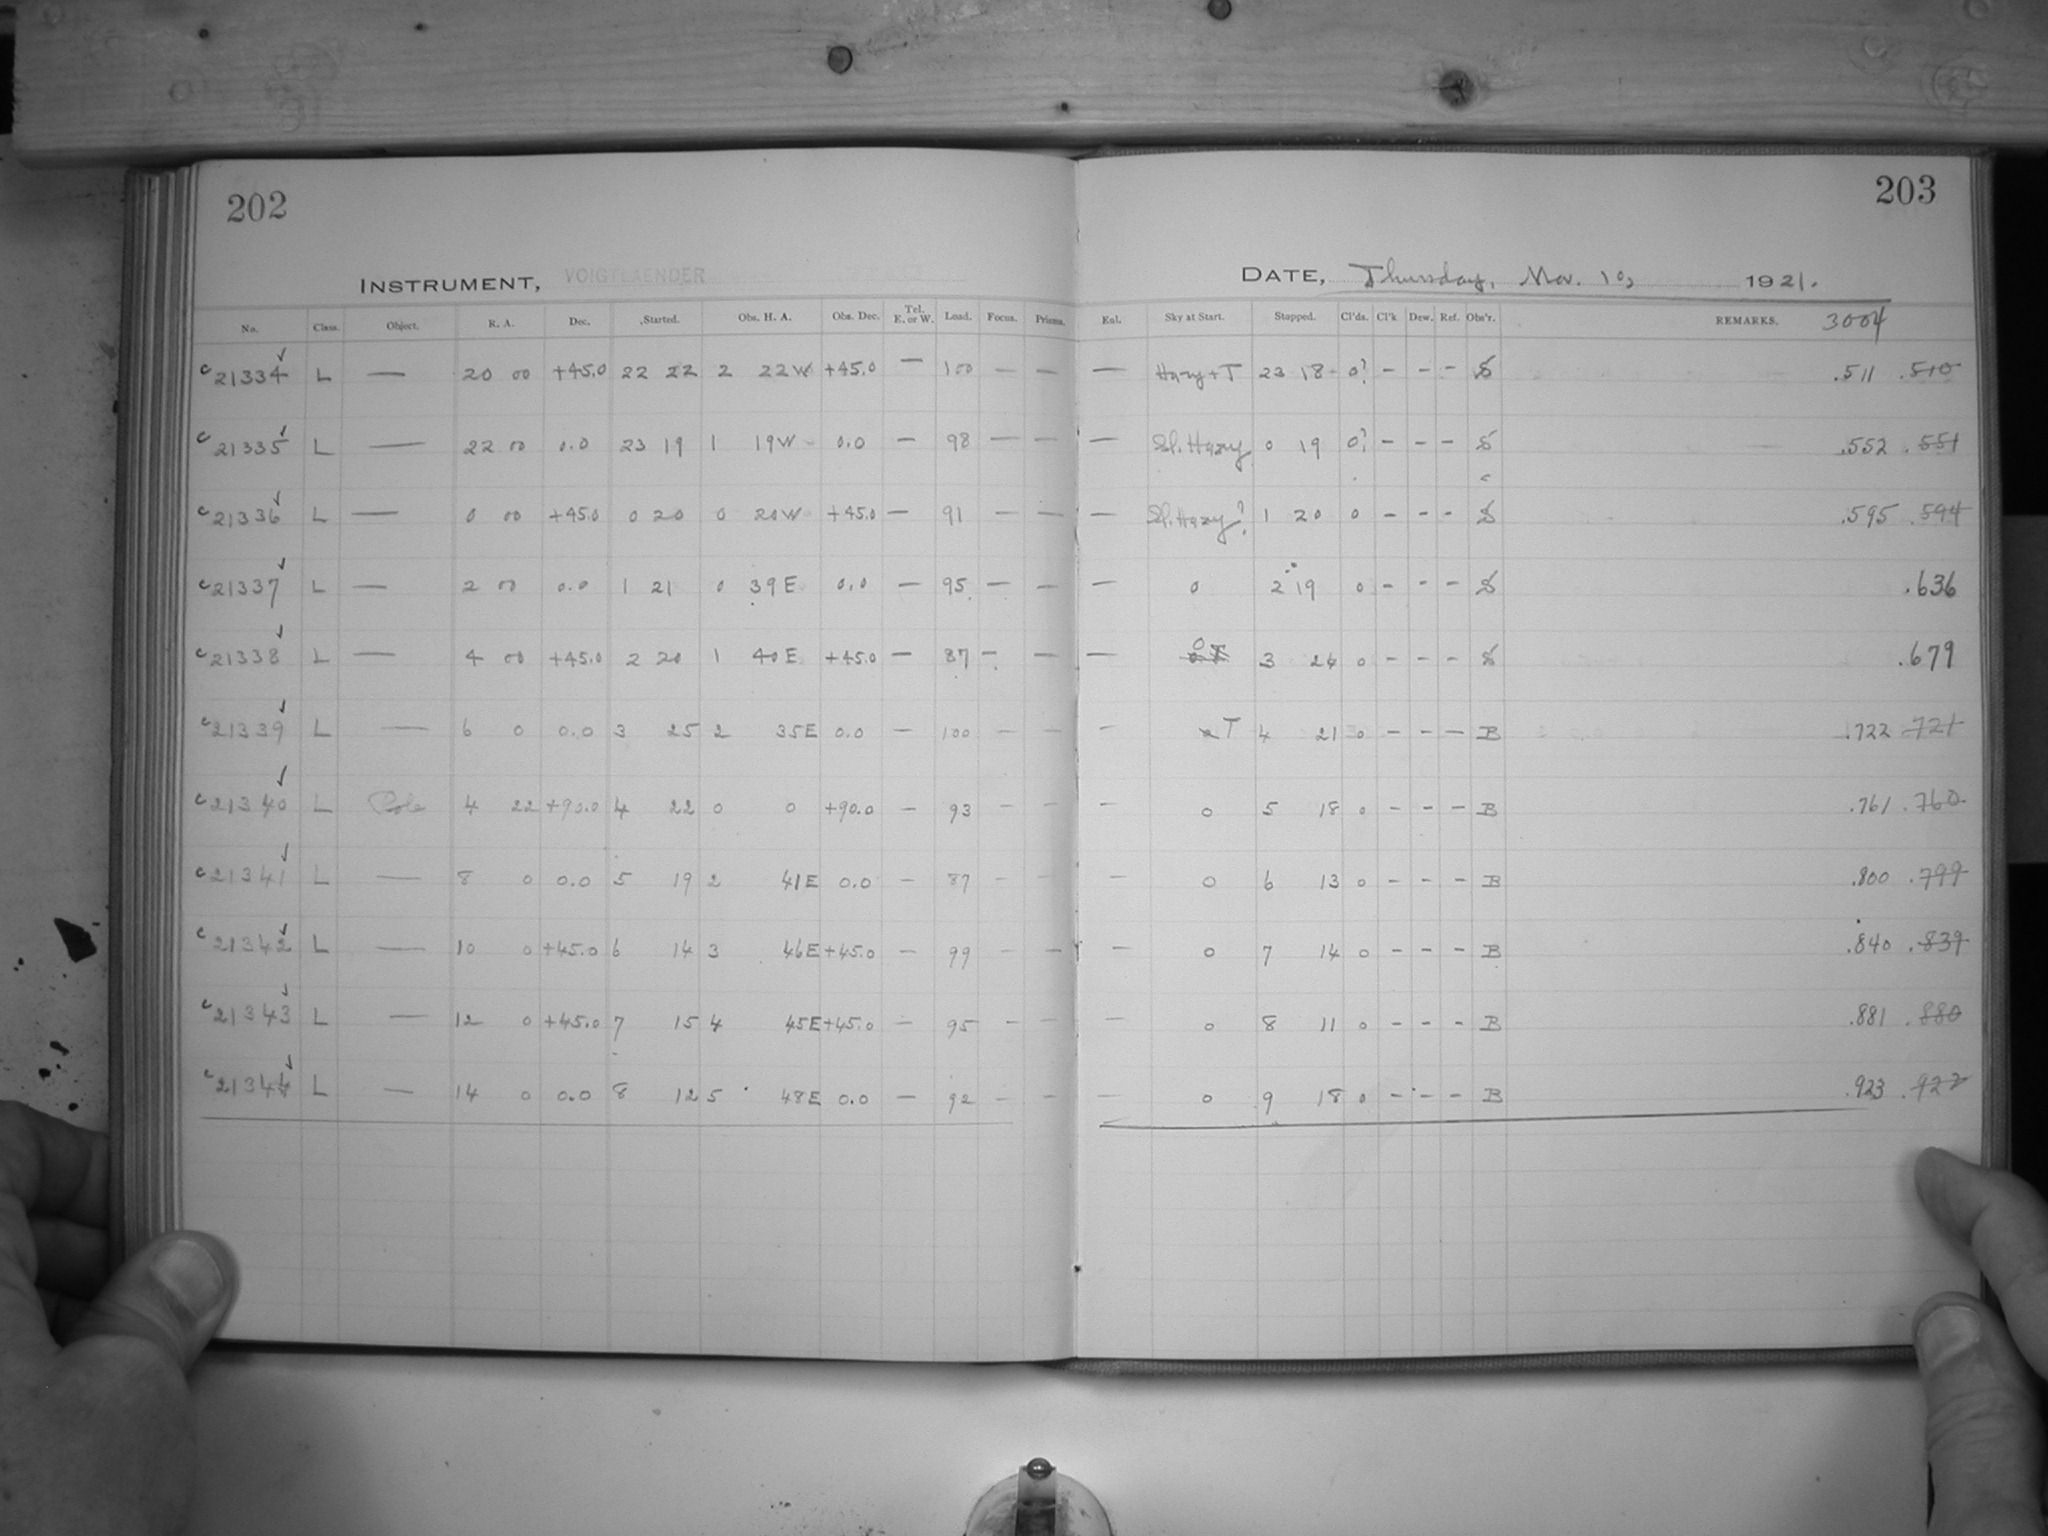 202
203
INSTRUMENT, VOIGTLAENDER
DATE, Thursday, Nov. 10, 1921.
No. Class. Object. R. A. Dec. Started. Obs. H. A. Obs. Dec. Tel. E. or W. Load. Focus. Prisms. Eul. Sky at Start. Stopped. Cl'ds. Cl'k Dew. Ref. Obs'r. REMARKS. 3004
c 21334 ✓ L — 20 00 +45.0 22 22 2 22W +45.0 — 100 — — — Hazy + T 23 18 0? - - - S .511 .510
c 21335 ✓ L — 22 00 0.0 23 19 1 19W 0.0 — 98 — — — Sl. Hazy 0 19 0? - - - S .552 .551
c 21336 ✓ L — 0 00 +45.0 0 20 0 20W +45.0 — 91 — — — Sl. Hazy? 1 20 0 - - - S .595 .594
c 21337 ✓ L — 2 00 0.0 1 21 0 39E 0.0 — 95 — — — 0 2 19 0 - - - S .636
c 21338 ✓ L — 4 00 +45.0 2 20 1 40E +45.0 — 87 — — — 0 3 24 0 - - - S .679
c 21339 ✓ L — 6 0 0.0 3 25 2 35E 0.0 — 100 — — — T 4 21 0 - - - B .722 .721
c 21340 ✓ L Pole 4 22 +90.0 4 22 0 0 +90.0 - 93 - - - 0 5 18 0 - - - B .761 .760
c 21341 ✓ L — 8 0 0.0 5 19 2 41E 0.0 - 87 - - — 0 6 13 0 - - - B .800 .799
c 21342 ✓ L — 10 0 +45.0 6 14 3 46E +45.0 - 99 - — — 0 7 14 0 - - - B .840 .839
c 21343 ✓ L — 12 0 +45.0 7 15 4 45E +45.0 - 95 - - — 0 8 11 0 - - - B .881 .880
c 21344 ✓ L — 14 0 0.0 8 12 5 48E 0.0 — 92 - - — 0 9 18 0 - - - B .923 .922